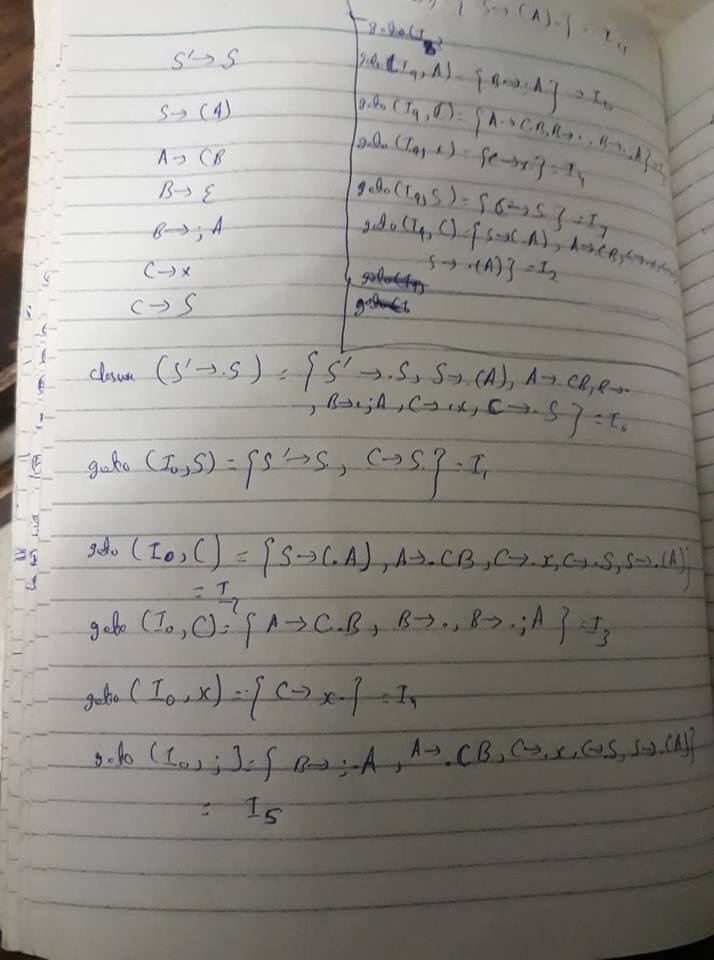 S → (A).} = I
goto(I8
S' → S
goto(I9, A) = {B → ; A} = I10
S → (A)
goto(I9, C) = {A → C.B, B → ., B → .; A} = I3
A → CB
goto(I9, x) = {C → x.} = I4
B → ε
goto(I9, S) = {C → S.} = I7
B → ; A
goto(I9, () = {S → (.A), A → .CB,
S → .(A)} = I2
C → x
C → S
closure (S' → .S) = { S' → .S, S → .(A), A → .CB, B → .
, B → .; A, C → .x, C → .S } = I0
goto (I0, S) = {S' → S., C → S.} = I1
goto (I0, () = {S → (.A), A → .CB, C → .x, C → .S, S → .(A)}
= I2
goto (I0, C) = { A → C.B, B → ., B → .; A } = I3
goto (I0, x) = { C → x.} = I4
goto (I0, ;) = { B → ;.A, A → .CB, C → .x, C → .S, S → .(A)}
= I5